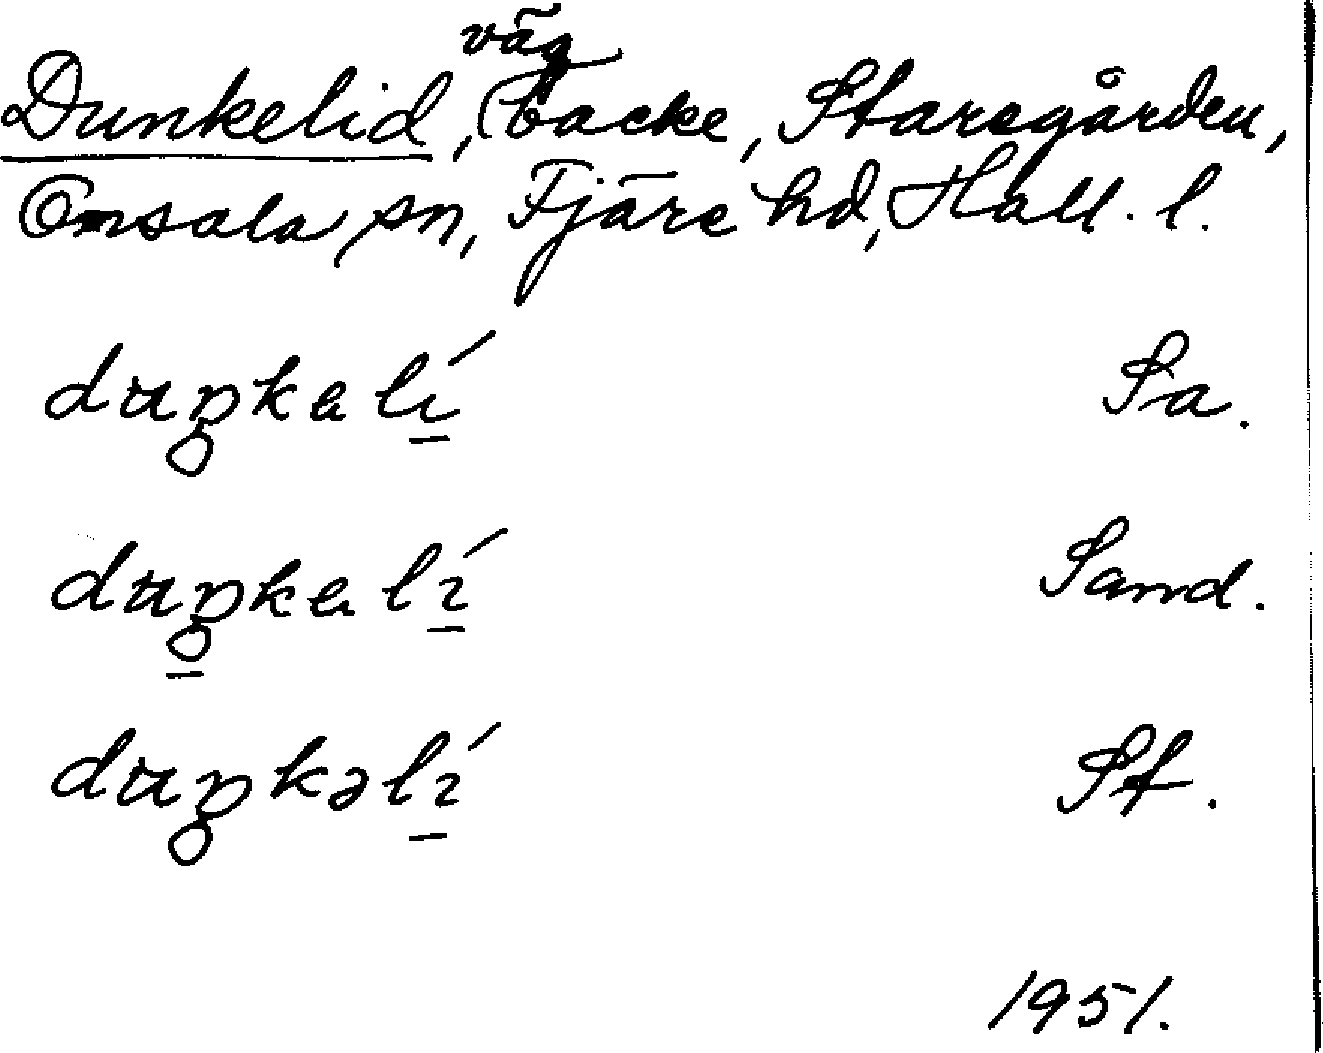 väg
Dunkelid, (backe, Staregården,
Onsala sn, Fjäre hd, Hall. l.
duŋkelí Sa.
duŋkelí Sand.
duŋkəlí Sf.
1951.